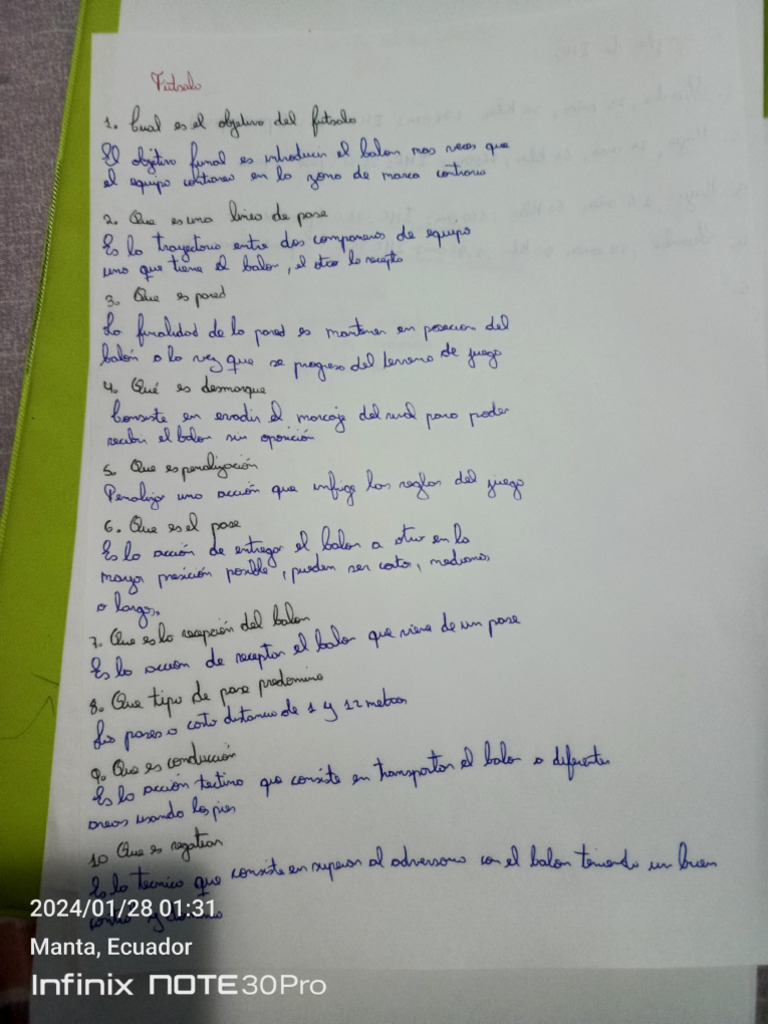 Futsala
1. Cual es el objetivo del futsala
El objetivo funal es introducir el balon mas veces que
el equipo contrareo en la zona de marca contraria
2. Que es una linea de pase
Es la trayectoria entre dos companeros de equipo
uno que tiene el balon, el otro lo recepta
3. Que es pared
La finalidad de la pared es mantener en posecion del
balón a la vez que se progresa del terreno de juego
4. Qué es desmarque
Consiste en evadir el marcaje del rival para poder
recibir el balon sin oposición
5. Que es penalización
Penalizar una acción que infrige las reglas del juego
6. Que es el pase
Es la acción de entregar el balon a otro en la
mayor presición posible, pueden ser corto, medianos
o largos.
7. Que es la recepción del balon
Es la accion de receptar el balon que viene de un pase
8. Que tipo de pase predomina
Los pases a corta distancia de 1 y 12 metros
9. Que es conducción
Es la acción tectina que consiste en transportar el balon a diferentes
areas usando los pies
10 Que es regatear
Es la tecnica que consiste en superar al adversario con el balon teniendo un buen
control y dominio
2024/01/28 01:31
Manta, Ecuador
Infinix NOTE 30 Pro